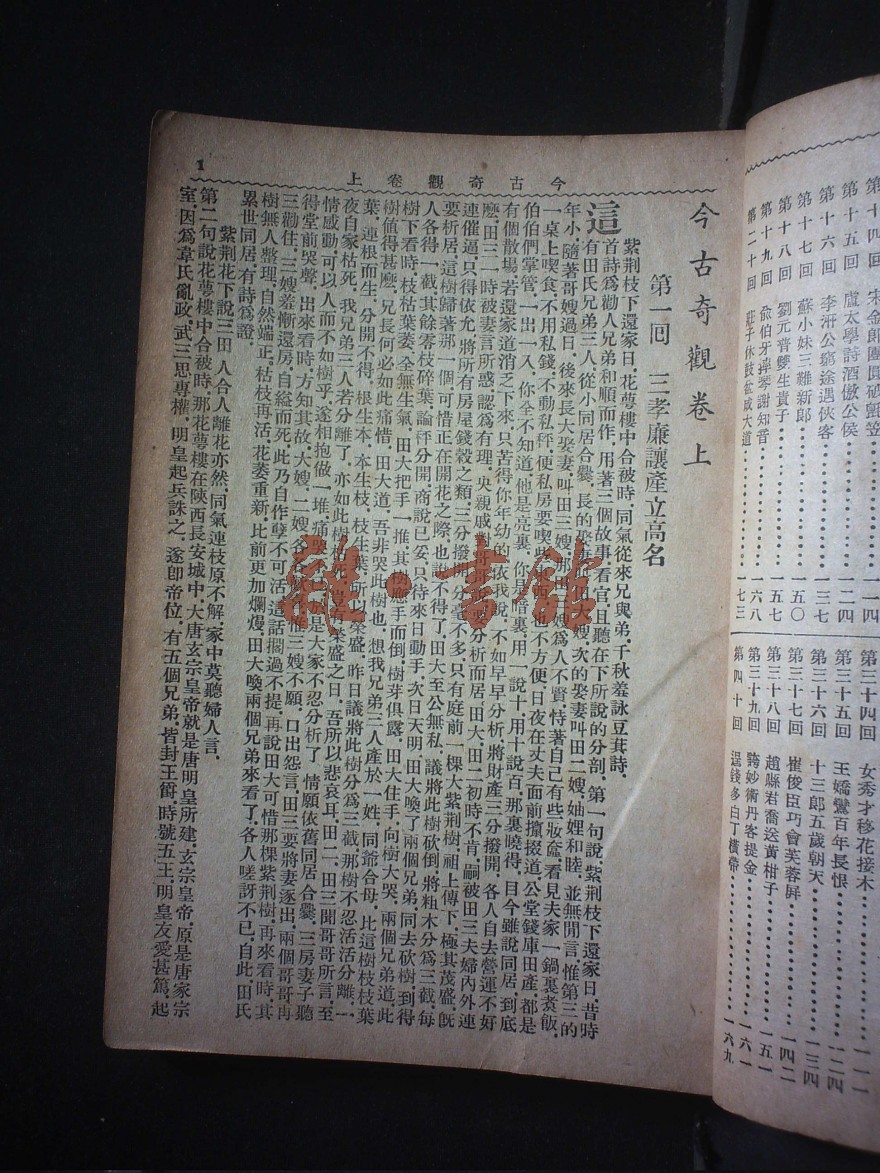 第十四回 宋金郎團圓破氈笠 一一四
第十五回 盧太學詩酒傲公侯 一二四
第十六回 李汧公窮途遇俠客 一三七
第十七回 蘇小妹三難新郎 一五〇
第十八回 劉元普雙生貴子 一五七
第十九回 俞伯牙摔琴謝知音 一六八
第二十回 莊子休鼓盆成大道 一七三
第三十四回 女秀才移花接木
第三十五回 王嬌鸞百年長恨 一二四
第三十六回 十三郎五歲朝天 一三四
第三十七回 崔俊臣巧會芙蓉屏 一四二
第三十八回 趙縣君喬送黃柑子 一五一
第三十九回 誇妙術丹客提金 一六一
第四十回 逞錢多白丁橫帶 一六九
今古奇觀卷上
1
今古奇觀卷上
第一回 三孝廉讓產立高名
紫荊枝下還家日，花萼樓中合被時，同氣從來兄與弟，千秋羞詠豆萁詩，
這首詩爲勸人兄弟和順而作，用著三個故事，看官，且聽在下所說的分剖，第一句說，紫荊枝下還家日，昔時
有田氏兄弟三人，從小同居合爨，長的娶妻叫田大嫂，次的娶妻叫田二嫂，妯娌和睦，並無閒言，惟第三的
年小，隨著哥嫂過日，後來長大娶妻，叫田三嫂，那田三嫂爲人不賢，恃著自己有些妝奩，看見夫家一鍋裏煮飯，
一桌上喫食，不用私錢，不動私秤，便私房要喫些東西，也不方便，日夜在丈夫面前攛掇道，公堂錢庫田產，都是
伯伯們掌管，一出一入，你全不知道，他是亮裏，你是暗裏，用一說十，用十說百，那裏曉得，目今雖說同居，到底
有個散場，若還家道消乏下來，只苦得你年幼的，依我說，不如早早分析，將財產三分撥開，各人自去營運不好
麽，田三一時被妻言所惑，認爲有理，央親戚對哥哥說，要分析而居，田大、田二初時不肯，嗣被田三夫婦內外連
連催逼，只得依允，將所有房屋錢穀之類，三分撥開，分毫不多，只有庭前一棵大紫荊樹，祖上傳下，極其茂盛，旣
要析居，這樹歸著那一個，可惜正在開花之際，也說不得了，田大至公無私，議將此樹砍倒，將粗木分爲三截，每
人各得一截，其餘零枝碎葉，論秤分開，商說已妥，只待來日動手，次日天明，田大喚了兩個兄弟，同去砍樹，到得
樹下看時，枝枯葉萎，全無生氣，田大把手一推，其樹應手而倒，樹芽俱露，田大住手，向樹大哭，兩個兄弟道，此
樹値得甚麽，兄長何必如此痛惜，田大道，吾非哭此樹也，想我兄弟三人，產於一姓，同爺合母，比這樹枝枝葉
葉，連根而生，分開不得，根生本，本生枝，枝生葉，所以榮盛，昨日議將此樹分爲三截，那樹不忍活活分離，一
夜自家枯死，我兄弟三人若分離了，亦如此樹枯死，豈有榮盛之日，吾所以悲哀耳，田二、田三聞哥哥所言，至
情感動，可以人而不如樹乎，遂相抱做一堆，痛哭不已，於是大家不忍分析了，情願依舊同居合爨，三房妻子聽
得堂前哭聲，出來看時，方知其故，大嫂、二嫂各各歡喜，惟三嫂不願，口出怨言，田三要將妻逐出，兩個哥哥再
三勸住，三嫂羞慚還房，自縊而死，此乃自作孽不可活，這話擱過不提，再說田大可惜那棵紫荊樹，再來看時，其
樹無人整理，自然端正，枯枝再活，花萎重新，比前更加爛熳，田大喚兩個兄弟來看了，各人嗟訝不已，自此田氏
累世同居，有詩爲證，
紫荊花下說三田，人合人離花亦然，同氣連枝原不解，家中莫聽婦人言，
第二句說花萼樓中合被時，那花萼樓在陝西長安城中，大唐玄宗皇帝就是唐明皇所建，玄宗皇帝，原是唐家宗
室，因爲韋氏亂政，武三思專權，明皇起兵誅之，遂卽帝位，有五個兄弟，皆封王爵，時號五王，明皇友愛甚篤，起
雅·書館